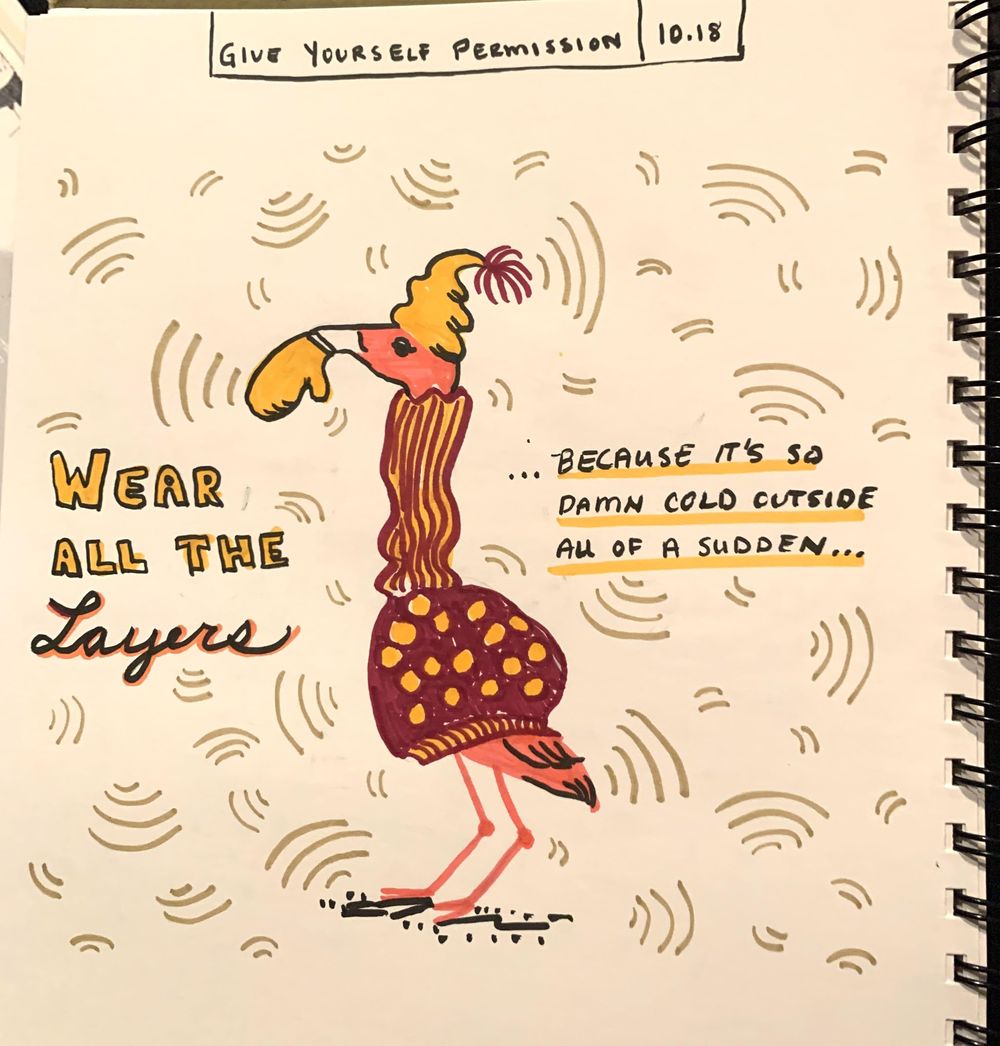 GIVE YOURSELF PERMISSION 10.18
WEAR
ALL THE
Layers
...BECAUSE IT'S SO
DAMN COLD OUTSIDE
ALL OF A SUDDEN...